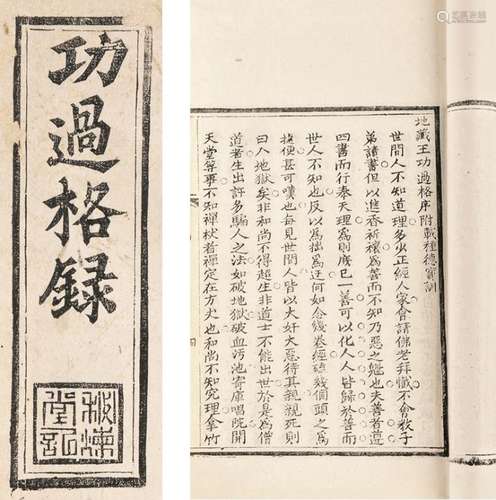 功過格録
地藏王功過格序附載種德寶訓
世間人不知道理多少正經人家會請佛老拜懺不會教子
弟讀書但以進香祈禳為善而不知乃惡之魁也夫善者遵
四書而行奉天理為則廣己一善可以化人人皆歸於善而
世人不知也反以為拙為迂何如念幾卷經磕幾個頭之為
捷便甚可嘆也每見世間人皆以大奸大惡待其親親死則
曰入地獄矣非和尚不得超生非道士不能出世於是為僧
道者生出許多騙人之法如破地獄破血污池寄庫唱院開
天堂等事不知禪杖者禪定在方丈也和尚不知究理拿竹